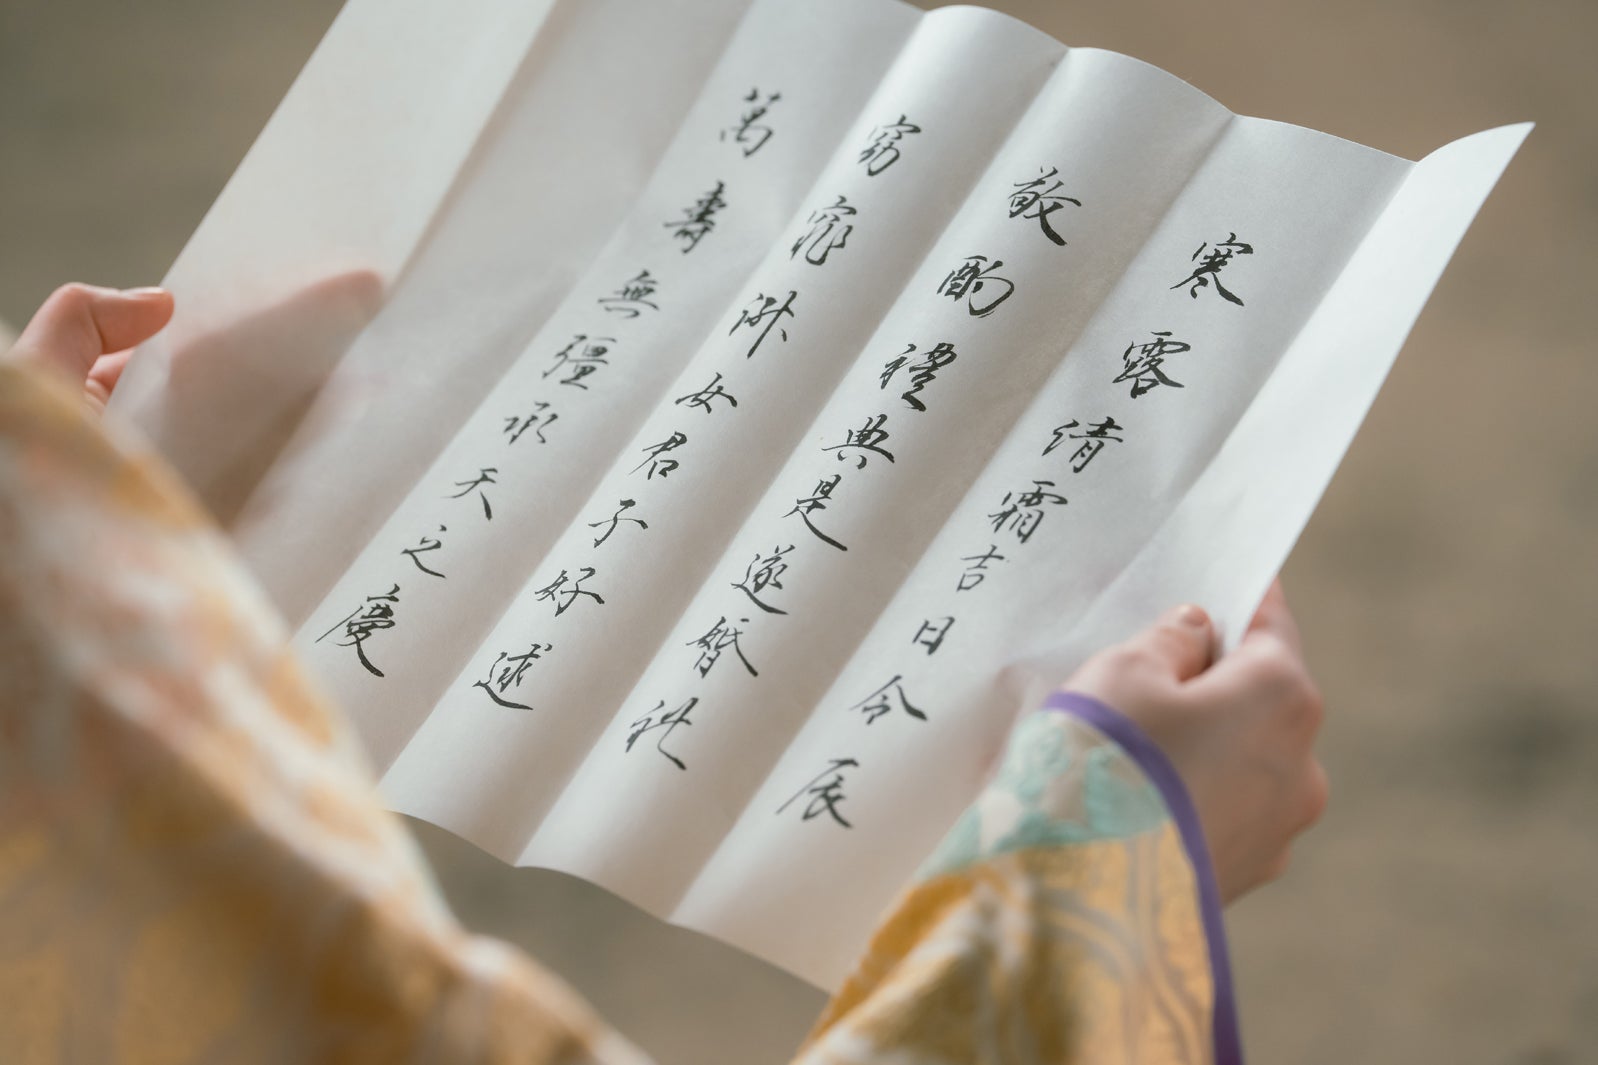 寒露綪霜吉日令辰
敬酌禮典是遂婚礼
窈窕淑女君子好逑
萬壽無疆承天之慶